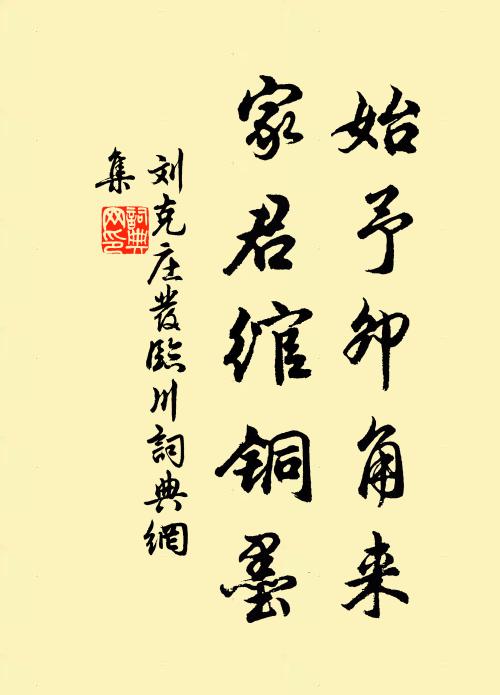 始予丱角来
家君绾铜墨
刘克庄發臨川詞典網
集
詞典网印